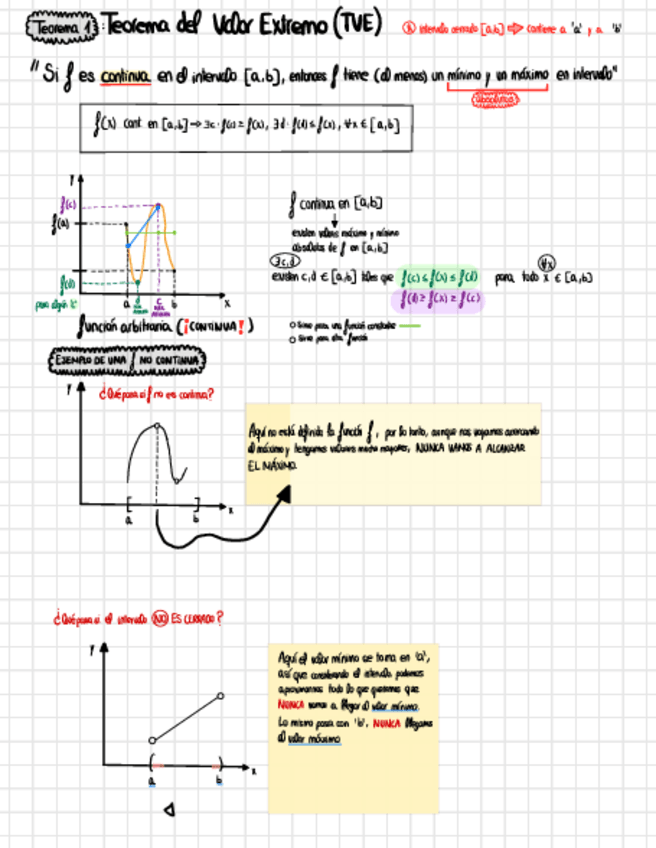 Teorema 1: Teorema del Valor Extremo (TVE)
intervalo cerrado [a,b] ⇒ contiene a 'a' y a 'b'
"Si f es continua en el intervalo [a,b], entonces f tiene (al menos) un mínimo y un máximo en intervalo"
absolutos
f(x) cont en [a,b] → ∃c · f(c) ≥ f(x), ∃d · f(d) ≤ f(x), ∀x ∈ [a,b]
y
f(c)
f(a)
f(d)
a d c b x
para algún 'x'
función arbitraria (¡CONTINUA!)
f continua en [a,b]
existen valores máximo y mínimo
absolutos de f en [a,b]
∃c,d
∀x
existen c,d ∈ [a,b] tales que f(c) ≤ f(x) ≤ f(d) para todo x ∈ [a,b]
f(d) ≥ f(x) ≥ f(c)
Sirve para una función constante
Sirve para otra función
EJEMPLO DE UNA f NO CONTINUA
y
¿Qué pasa si f no es continua?
Aquí no está definida la función f, por lo tanto, aunque nos vayamos acercando
al máximo y tengamos valores mucho mayores, NUNCA VAMOS A ALCANZAR
EL MÁXIMO.
a b x
¿Qué pasa si el intervalo NO ES CERRADO?
y
Aquí el valor mínimo se toma en 'a',
así que considerando el intervalo podemos
aproximarnos todo lo que queramos que
NUNCA vamos a llegar al valor mínimo.
Lo mismo pasa con 'b', NUNCA llegamos
al valor máximo
a b x